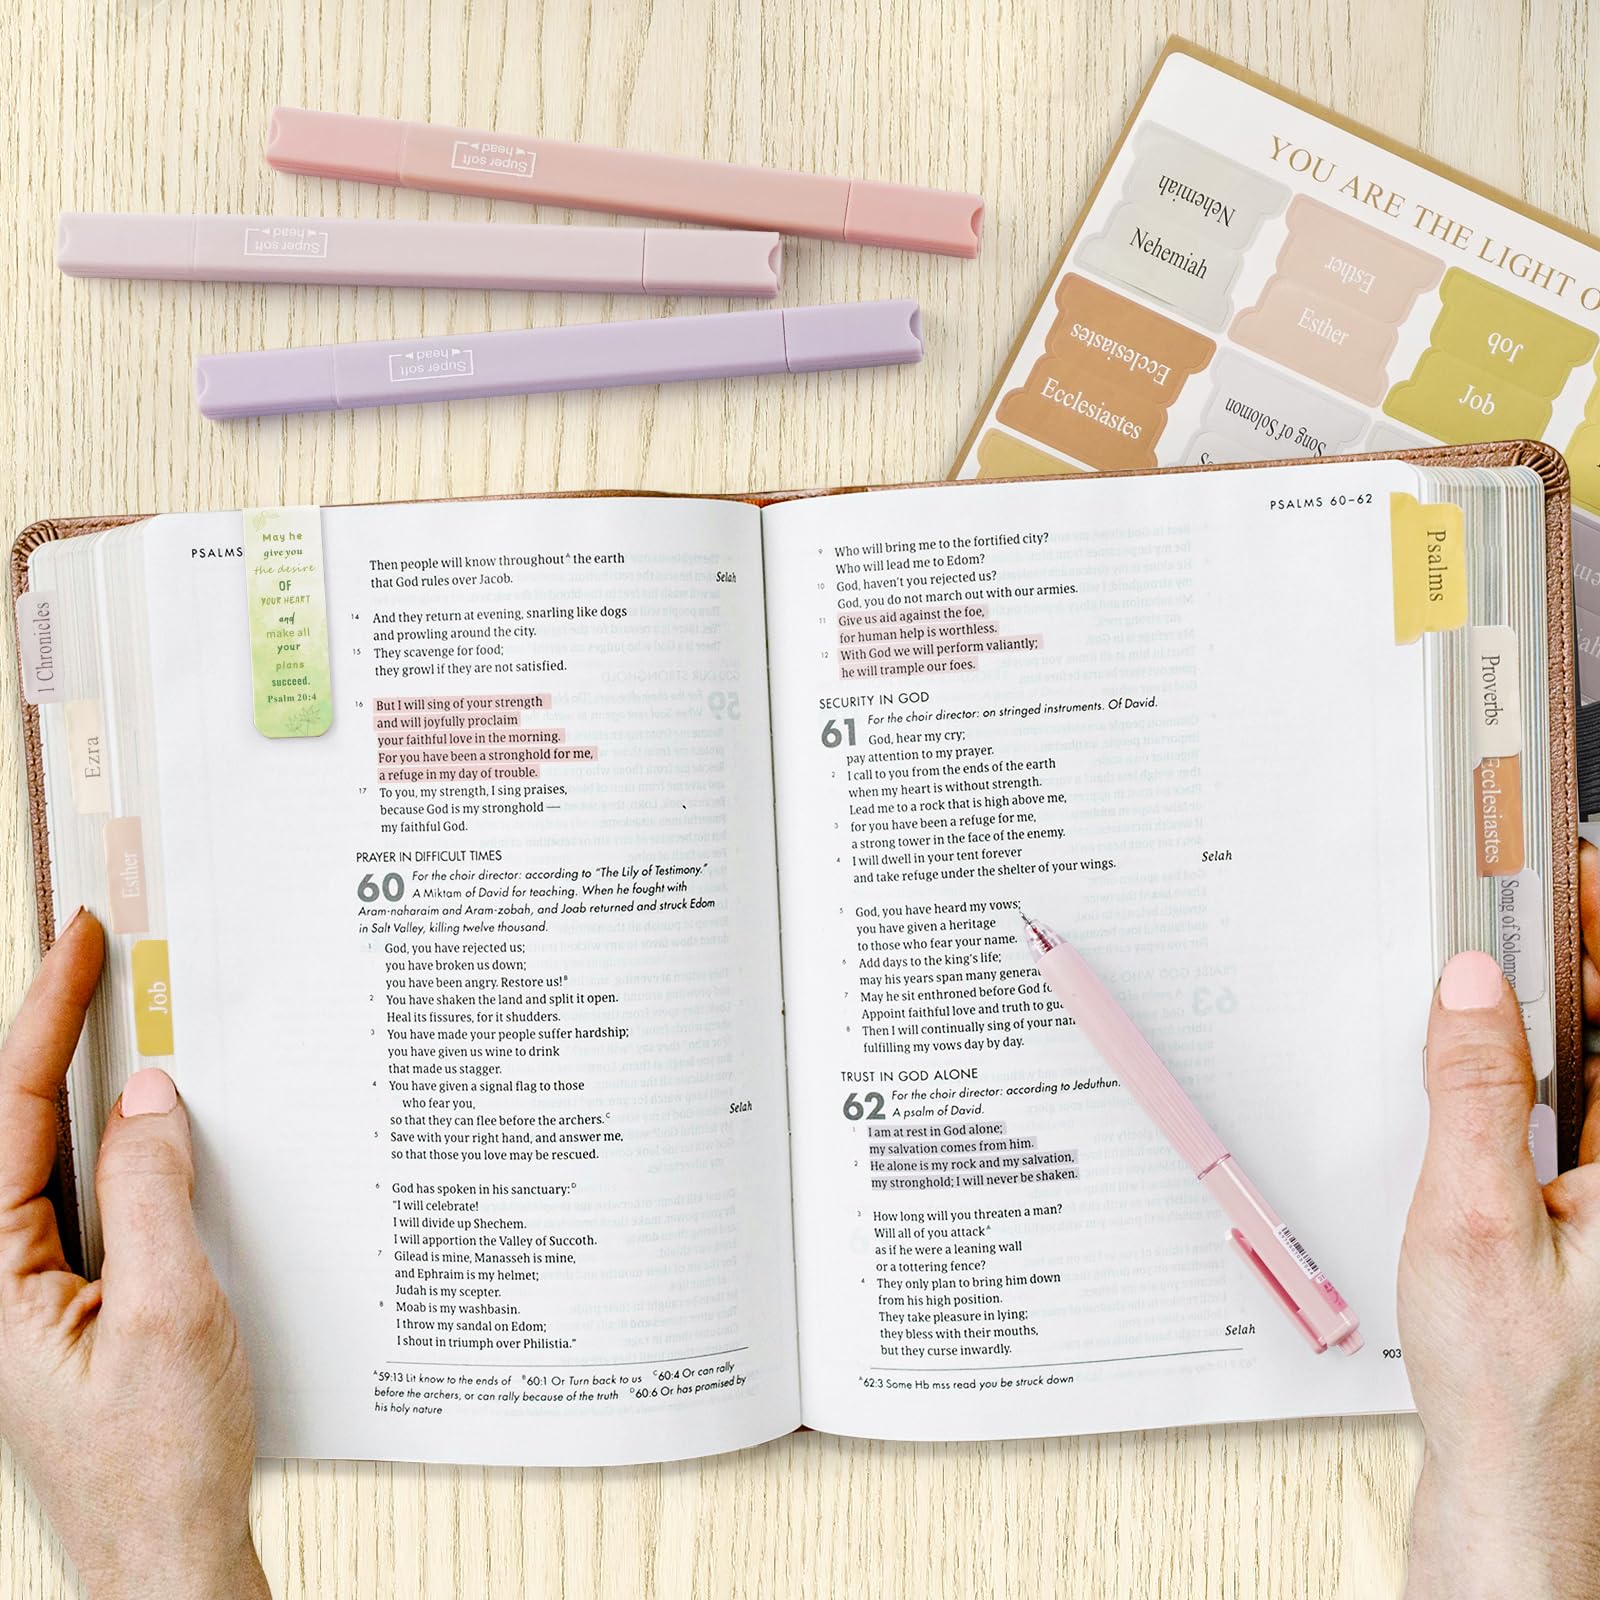 Super soft
head
Super soft
head
Super soft
head
YOU ARE THE LIGHT O
Nehemiah
Nehemiah
Esther
Esther
Job
Job
Ecclesiastes
Ecclesiastes
Song of Solomon
1 Chronicles
Ezra
Esther
Job
PSALMS
May he
give you
the desire
OF
YOUR HEART
and
make all
your
plans
succeed.
Psalm 20:4
Then people will know throughoutᴬ the earth
that God rules over Jacob. Selah
14 And they return at evening, snarling like dogs
and prowling around the city.
15 They scavenge for food;
they growl if they are not satisfied.
16 But I will sing of your strength
and will joyfully proclaim
your faithful love in the morning.
For you have been a stronghold for me,
a refuge in my day of trouble.
17 To you, my strength, I sing praises,
because God is my stronghold —
my faithful God.
PRAYER IN DIFFICULT TIMES
60 For the choir director: according to "The Lily of Testimony."
A Miktam of David for teaching. When he fought with
Aram-naharaim and Aram-zobah, and Joab returned and struck Edom
in Salt Valley, killing twelve thousand.
1 God, you have rejected us;
you have broken us down;
you have been angry. Restore us!ᴮ
2 You have shaken the land and split it open.
Heal its fissures, for it shudders.
3 You have made your people suffer hardship;
you have given us wine to drink
that made us stagger.
4 You have given a signal flag to those
who fear you,
so that they can flee before the archers.ᶜ Selah
5 Save with your right hand, and answer me,
so that those you love may be rescued.
6 God has spoken in his sanctuary:ᴰ
"I will celebrate!
I will divide up Shechem.
I will apportion the Valley of Succoth.
7 Gilead is mine, Manasseh is mine,
and Ephraim is my helmet;
Judah is my scepter.
8 Moab is my washbasin.
I throw my sandal on Edom;
I shout in triumph over Philistia."
ᴬ59:13 Lit know to the ends of ᴮ60:1 Or Turn back to us ᶜ60:4 Or can rally
before the archers, or can rally because of the truth ᴰ60:6 Or has promised by
his holy nature
PSALMS 60–62
9 Who will bring me to the fortified city?
Who will lead me to Edom?
10 God, haven't you rejected us?
God, you do not march out with our armies.
11 Give us aid against the foe,
for human help is worthless.
12 With God we will perform valiantly;
he will trample our foes.
SECURITY IN GOD
61 For the choir director: on stringed instruments. Of David.
God, hear my cry;
pay attention to my prayer.
2 I call to you from the ends of the earth
when my heart is without strength.
Lead me to a rock that is high above me,
3 for you have been a refuge for me,
a strong tower in the face of the enemy.
4 I will dwell in your tent forever
and take refuge under the shelter of your wings. Selah
5 God, you have heard my vows;
you have given a heritage
to those who fear your name.
6 Add days to the king's life;
may his years span many genera
7 May he sit enthroned before God fo
Appoint faithful love and truth to gu
8 Then I will continually sing of your nam
fulfilling my vows day by day.
TRUST IN GOD ALONE
62 For the choir director: according to Jeduthun.
A psalm of David.
1 I am at rest in God alone;
my salvation comes from him.
2 He alone is my rock and my salvation,
my stronghold; I will never be shaken.
3 How long will you threaten a man?
Will all of you attackᴬ
as if he were a leaning wall
or a tottering fence?
4 They only plan to bring him down
from his high position.
They take pleasure in lying;
they bless with their mouths,
but they curse inwardly. Selah
ᴬ62:3 Some Hb mss read you be struck down
903
Psalms
Proverbs
Ecclesiastes
Song of Solomon